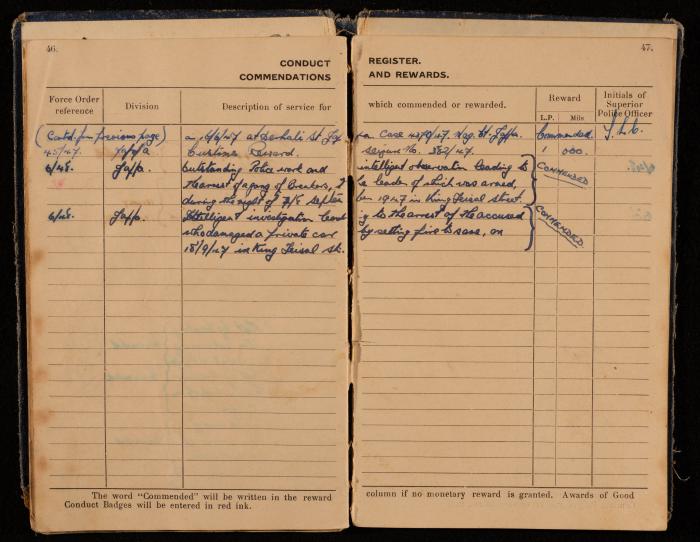 46.
CONDUCT
COMMENDATIONS
Force Order reference
Division
Description of service for
(Contd. from previous page) on 6/6/47 at St. Jaffa
45/47. Jaffa
Customs Reward.
6/48. Jaffa. Outstanding Police work and
the arrest of a gang of breakers, t
during the night of 7/8 Septem
6/48. Jaffa. Intelligent investigation lead
who damaged a private car
18/9/47 in King Feisal St.
The word "Commended" will be written in the reward
Conduct Badges will be entered in red ink.
47.
REGISTER.
AND REWARDS.
which commended or rewarded.
Reward
L.P. Mils
Initials of Superior Police Officer
Case Jaffa. Commended.
Seizure No. 382/47. 1 000.
intelligent observation leading to
he leader of which was armed, COMMENDED
ber 1947 in King Feisal street.
ing to the arrest of the accused
by setting fire to same, on COMMENDED.
column if no monetary reward is granted. Awards of Good